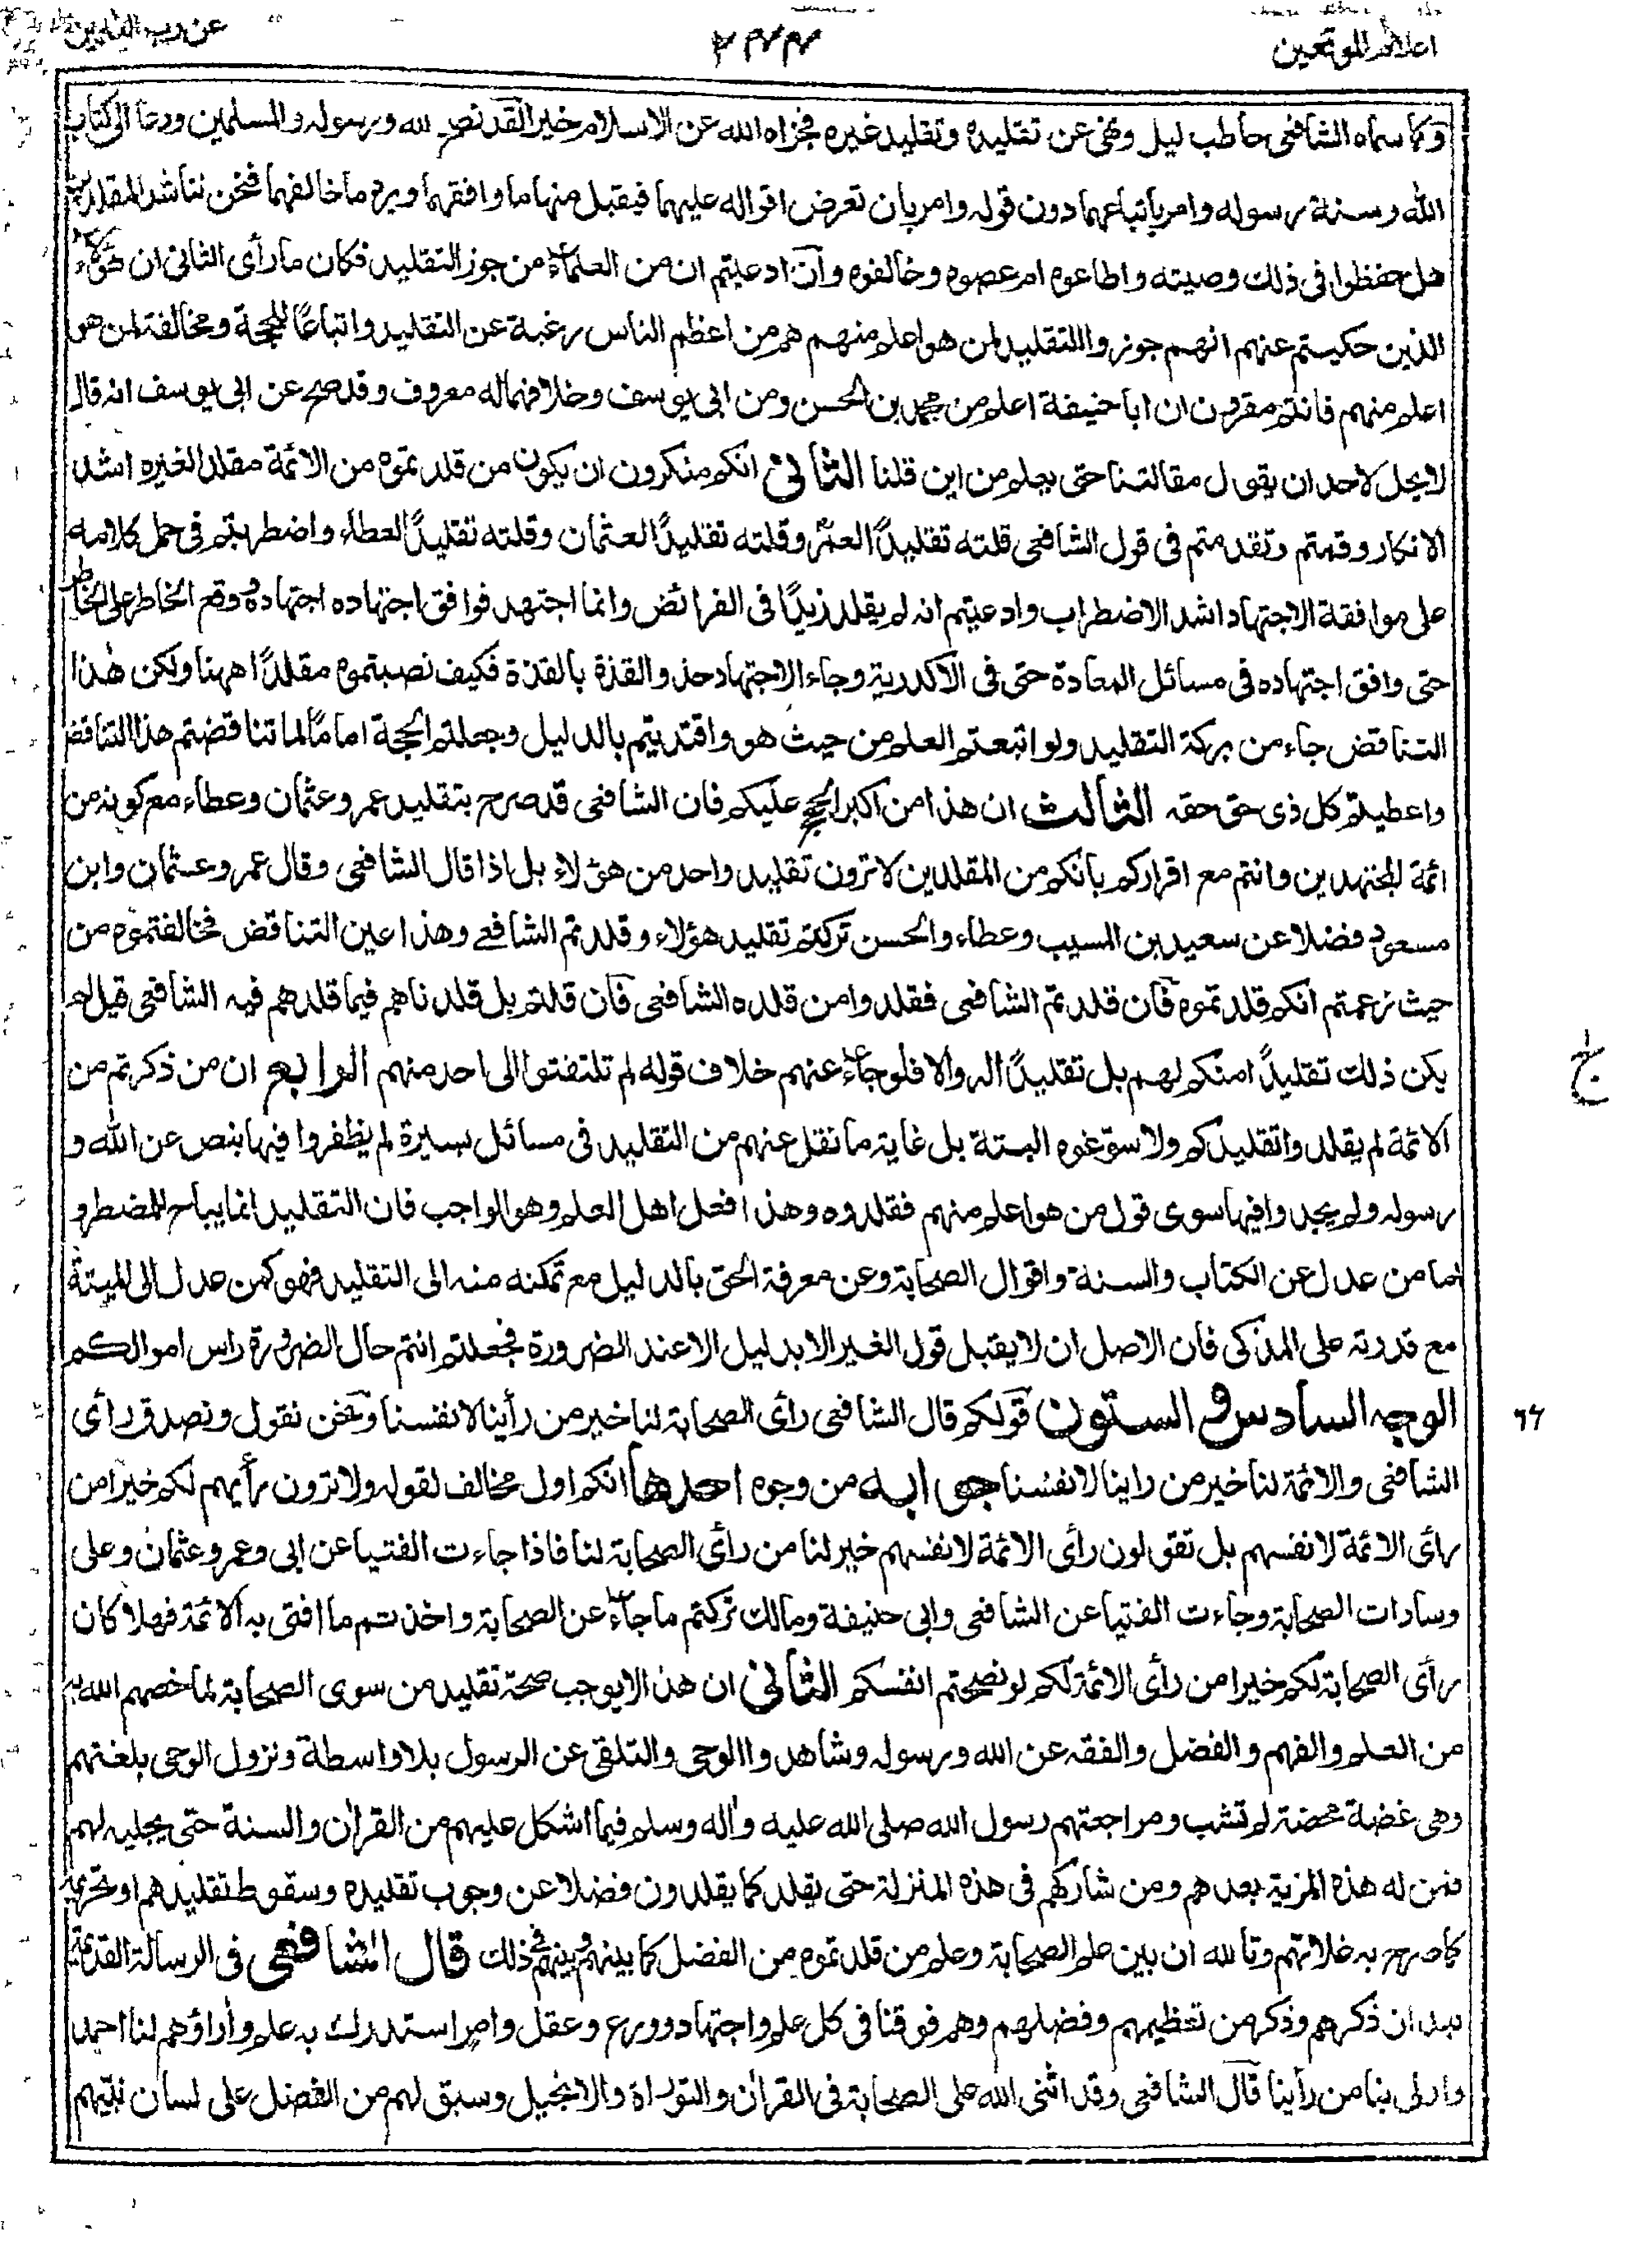 اعلام الموقعين
٢٤٤
عن رب العلمين
وكما سماه الشافعى حاطب ليل ونهى عن تقليده وتقليد غيره فجزاه الله عن الاسلام خيرا لقد نصح لله ورسوله والمسلمين ودعا الى كتاب
الله وسنة رسوله وامر باتباعهما دون قوله وامر بان تعرض اقواله عليهما فيقبل منها ما وافقهما ويرد ما خالفهما فنحن نناشد المقلدين
هل حفظوا فى ذلك وصيته واطاعوه ام عصوه وخالفوه وان ادعيتم ان من العلماء من جوز التقليد فكان ما رأى الثانى ان هؤلاء
الذين حكيتم عنهم انهم جوزوا التقليد لمن هو اعلم منهم هم من اعظم الناس رغبة عن التقليد واتباعًا للحجة ومخالفة لمن هو
اعلم منهم فانتم مقرون ان ابا حنيفة اعلم من محمد بن الحسن ومن ابى يوسف وخلافهما له معروف وقد صح عن ابى يوسف انه قال
لا يحل لاحد ان يقول مقالتنا حتى يعلم من اين قلنا الثانى انكم منكرون ان يكون من قلدتموه من الائمة مقلدا لغيره اشد
الانكار وقمتم وتقدمتم فى قول الشافعى قلته تقليدًا لعمر وقلته تقليدًا لعثمان وقلته تقليدًا لعطاء واضطربتم فى حمل كلامه
على موافقة الاجتهاد اشد الاضطراب وادعيتم انه لم يقلد زيدًا فى الفرائض وانما اجتهد فوافق اجتهاده اجتهاده ووقع الخاطر على الخاطر
حتى وافق اجتهاده فى مسائل المعادة حتى فى الاكدرية وجاء الاجتهاد حذو القذة بالقذة فكيف نصبتموه مقلدًا ههنا ولكن هذا
التناقض جاء من بركة التقليد ولو اتبعتم العلم من حيث هو واقتديتم بالدليل وجعلتم الحجة اماما لما تناقضتم هذا التناقض
واعطيتم كل ذى حق حقه الثالث ان هذا من اكبر الحجج عليكم فان الشافعى قد صرح بتقليد عمر وعثمان وعطاء مع كونه من
ائمة المجتهدين وانتم مع اقراركم بانكم من المقلدين لا ترون تقليد واحد من هؤلاء بل اذا قال الشافعى وقال عمر وعثمان وابن
مسعود فضلا عن سعيد بن المسيب وعطاء والحسن تركتم تقليد هؤلاء وقلدتم الشافعے وهذا عين التناقض فخالفتموه من
حيث زعمتم انكم قلدتموه فان قلدتم الشافعى فقلدوا من قلده الشافعى فان قلتم بل قلدناهم فيما قلدهم فيه الشافعى قيل لم
يكن ذلك تقليدًا منكم لهم بل تقليدًا له والا فلو جاء عنهم خلاف قوله لم تلتفتوا الى احد منهم الرابع ان من ذكرتم من
الائمة لم يقلدوا تقليدكم ولا سوغوه البتة بل غاية ما نقل عنهم من التقليد فى مسائل يسيرة لم يظفروا فيها بنص عن الله و
رسوله ولم يجدوا فيها سوى قول من هو اعلم منهم فقلدوه وهذا فعل اهل العلم وهو الواجب فان التقليد انما يباح للمضطر و
اما من عدل عن الكتاب والسنة واقوال الصحابة وعن معرفة الحق بالدليل مع تمكنه منه الى التقليد فهو كمن عدل الى الميتة
مع قدرته على المذكى فان الاصل ان لا يقبل قول الغير الا بدليل الا عند الضرورة فجعلتم انتم حال الضرورة راس اموالكم
الوجه السادس والستون قولكم قال الشافعى رأى الصحابة لنا خير من رأينا لانفسنا ونحن نقول ونصدق رأى
٦٦
الشافعى والائمة لنا خير من راينا لانفسنا جوابه من وجوه احدها انكم اول مخالف لقوله ولا ترون رأيهم لكم خيرا من
رأى الائمة لانفسهم بل تقولون رأى الائمة لانفسهم خير لنا من رأى الصحابة لنا فاذا جاءت الفتيا عن ابى وعمر وعثمان وعلى
وسادات الصحابة وجاءت الفتيا عن الشافعى وابى حنيفة ومالك تركتم ما جاء عن الصحابة واخذتم ما افتى به الائمة فهلا كان
رأى الصحابة لكم خيرا من رأى الائمة لكم لو نصحتم انفسكم الثانى ان هذا لا يوجب صحة تقليد من سوى الصحابة لما خصهم الله به
من العلم والفهم والفضل والفقه عن الله ورسوله وشاهدوا الوحى والتلقى عن الرسول بلا واسطة ونزول الوحى بلغتهم
وهى غضة محضة لم تشب ومراجعتهم رسول الله صلى الله عليه واله وسلم فيما اشكل عليهم من القران والسنة حتى يجليه لهم
فمن له هذه المزية بعدهم ومن شاركهم فى هذه المنزلة حتى يقلد كما يقلدون فضلا عن وجوب تقليده وسقوط تقليدهم او تحريمه
كما صرح به غلاتهم وتالله ان بين علم الصحابة وعلم من قلدتموه من الفضل كما بينهم وبينهم فى ذلك قال الشافعى فى الرسالة القديمة
بعد ان ذكرهم وذكر من تعظيمهم وفضلهم وهم فوقنا فى كل علم واجتهاد وورع وعقل وامر استدرك به علم واراؤهم لنا احمد
واولى بنا من رأينا قال الشافعى وقد اثنى الله على الصحابة فى القران والتوراة والانجيل وسبق لهم من الفضل على لسان نبيهم